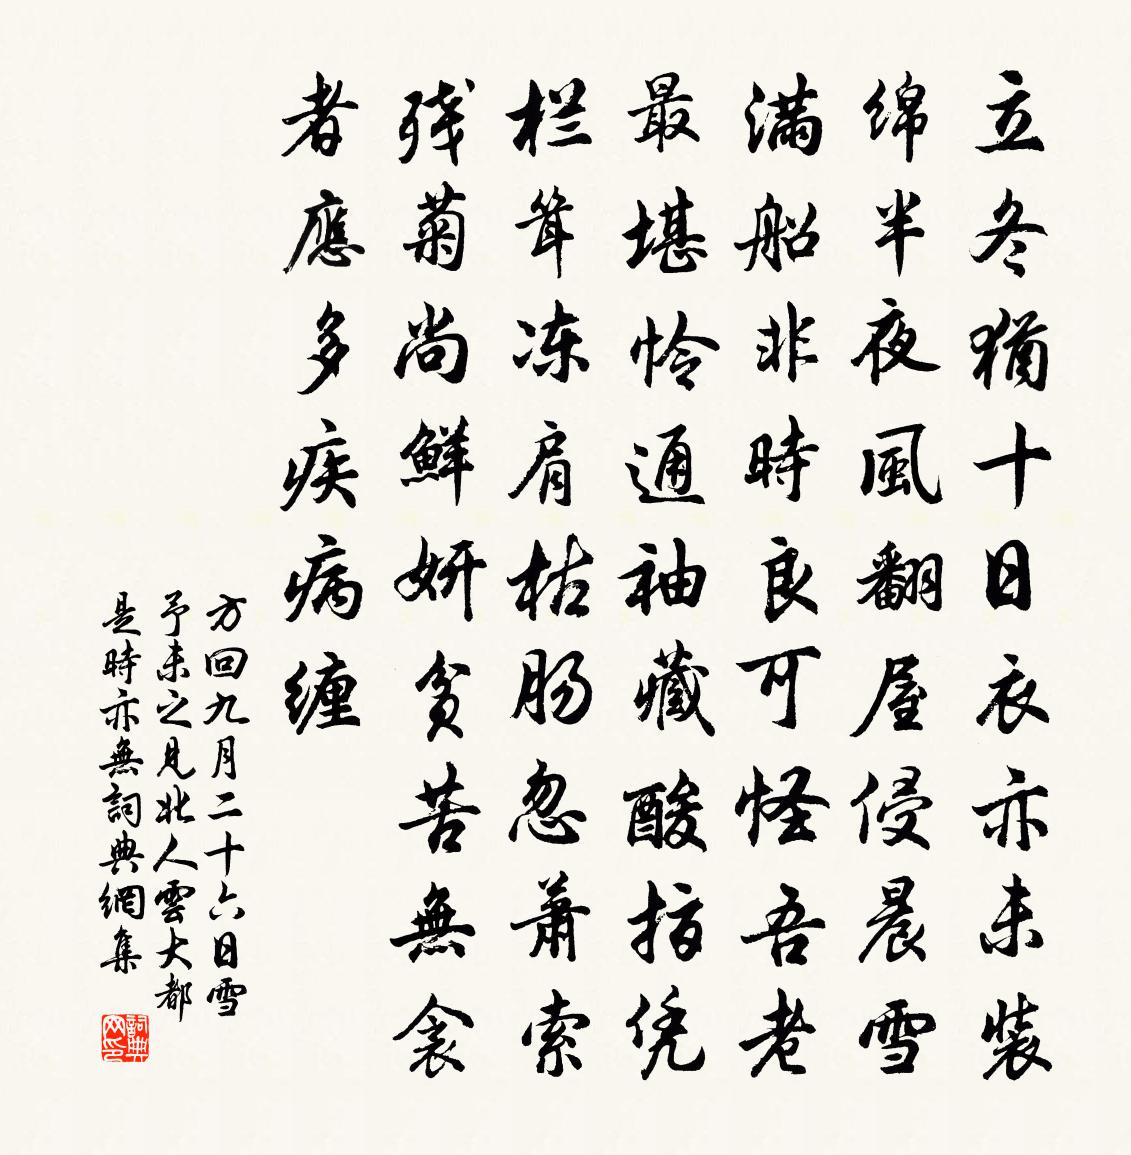 立冬猶十日衣亦未装
绵半夜風翻屋侵晨雪
满船非時良可怪吾老
最堪怜通袖藏酸指凭
栏耸冻肩枯肠忽萧索
残菊尚鮮妍貧苦無衾
者應多疾病缠
方回九月二十六日雪
予未之見北人雲大都
是時亦無詞典網集
詞典網印